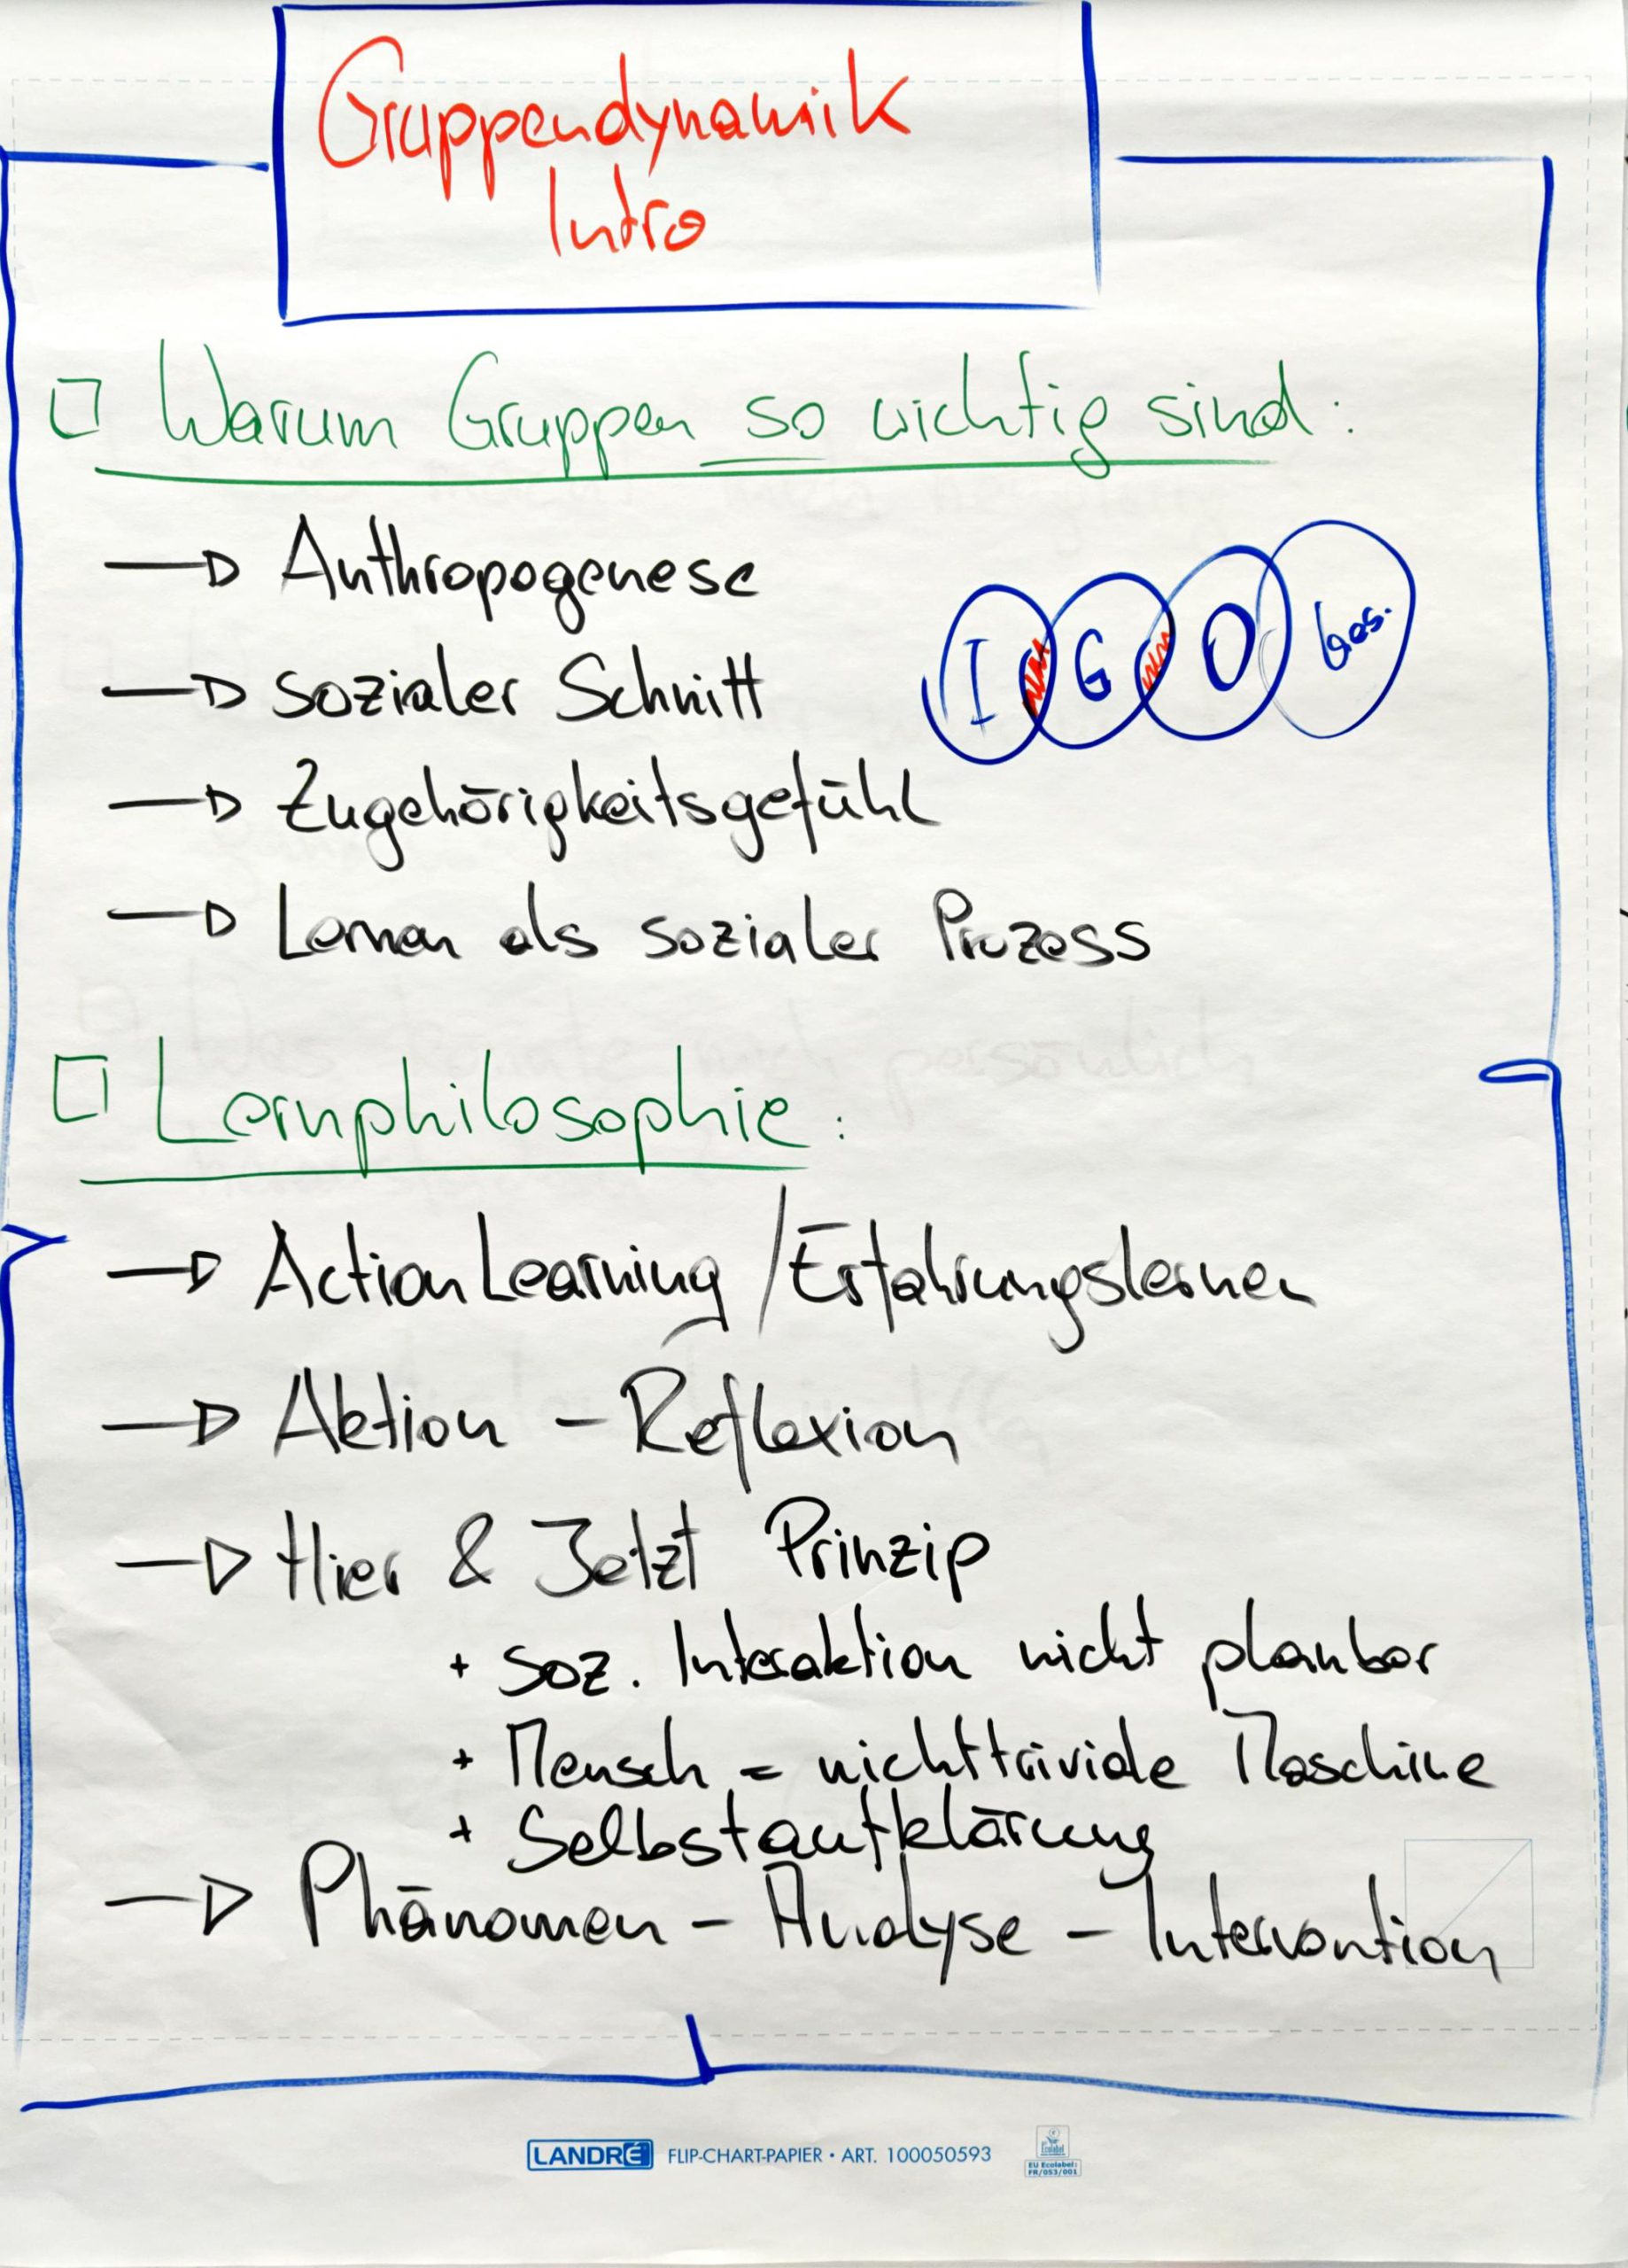 Gruppendynamik
Intro
Warum Gruppen so wichtig sind:
Anthropogenese
sozialer Schnitt
I G O Ges.
Zugehörigkeitsgefühl
Lernen als sozialer Prozess
Lernphilosophie:
Action Learning / Erfahrungslernen
Aktion – Reflexion
Hier & Jetzt Prinzip
+ soz. Interaktion nicht planbar
+ Mensch = nichttriviale Maschine
+ Selbstaufklärung
Phänomen – Analyse – Intervention
LANDRÉ FLIP-CHART-PAPIER • ART. 100050593
EU Ecolabel:
FR/053/001